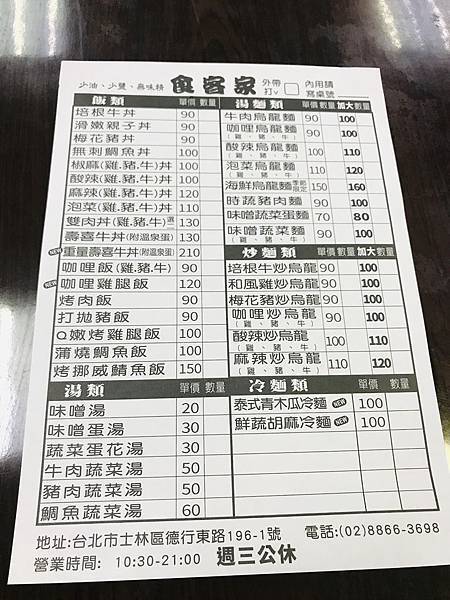 少油、少鹽、無味精 食客家 外帶打v 內用請寫桌號
飯類 單價 數量
培根牛丼 90
滑嫩親子丼 90
梅花豬丼 90
無刺鯛魚丼 100
椒麻(雞.豬.牛)丼 100
酸辣(雞.豬.牛)丼 100
麻辣(雞.豬.牛)丼 110
泡菜(雞.豬.牛)丼 110
雙肉丼(雞.豬.牛) 130
壽喜牛丼(附溫泉蛋) 130
NEW 重量壽喜牛丼(附溫泉蛋) 210
咖哩飯(雞.豬.牛) 90
NEW 咖哩雞腿飯 120
烤肉飯 90
打拋豬飯 90
Q嫩烤雞腿飯 100
蒲燒鯛魚飯 100
烤挪威鯖魚飯 150
湯類 單價 數量
味噌湯 20
味噌蛋湯 30
蔬菜蛋花湯 30
牛肉蔬菜湯 50
豬肉蔬菜湯 50
鯛魚蔬菜湯 60
湯麵類 單價 數量 加大 數量
牛肉烏龍麵 90 100
咖哩烏龍麵 90 100
(雞、豬、牛)
酸辣烏龍麵 100 110
(雞、豬、牛)
泡菜烏龍麵 110 120
(雞、豬、牛)
海鮮烏龍麵 季節限定 150 160
時蔬豬肉麵 90 100
味噌蔬菜蛋麵 70 80
味噌蔬菜麵 90 100
(雞、豬、牛)
炒麵類 單價 數量 加大 數量
培根牛炒烏龍 90 100
和風雞炒烏龍 90 100
梅花豬炒烏龍 90 100
咖哩炒烏龍 90 100
(雞、豬、牛)
酸辣炒烏龍 100 110
(雞、豬、牛)
麻辣炒烏龍 110 120
(雞、豬、牛)
冷麵類 單價 數量
泰式青木瓜冷麵 NEW 100
鮮蔬胡麻冷麵 NEW 100
地址:台北市士林區德行東路196-1號 電話:(02)8866-3698
營業時間: 10:30-21:00 週三公休